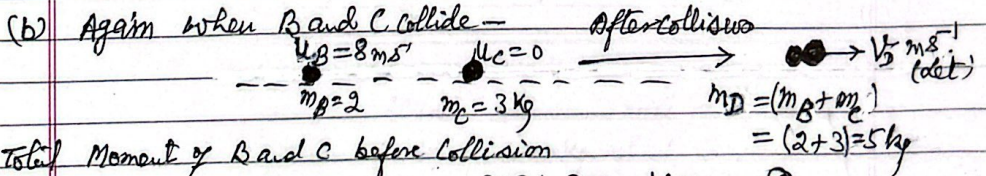 (b) Again when B and C Collide — After collision
u_B = 8 ms⁻¹ u_C = 0 → V_D ms⁻¹ (let)
m_B = 2 m_C = 3 kg m_D = (m_B + m_C)
= (2+3) = 5 kg
Total Moment of B and C before Collision